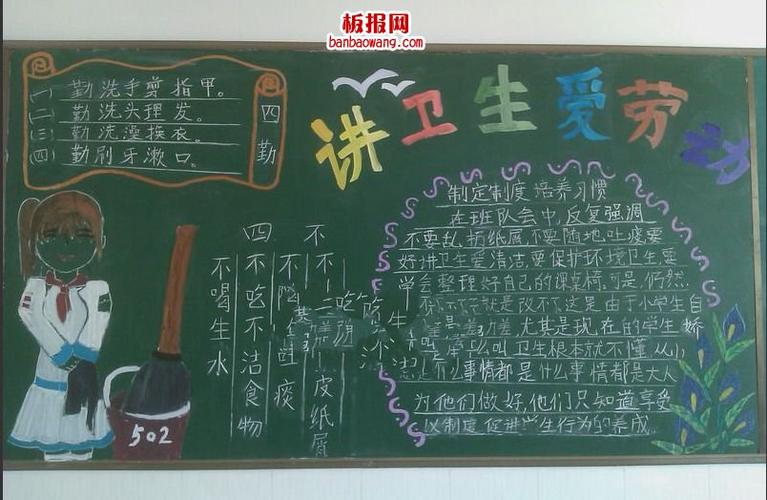 板报网
banbaowang.com
讲卫生爱劳动
四勤
(一) 勤洗手剪指甲。
(二) 勤洗头理发。
(三) 勤洗澡换衣。
(四) 勤刷牙漱口。
四不
不喝生水
不吃不洁食物
不随
吐痰
皮纸屑
制定制度 培养习惯
在班队会中,反复强调
不要乱扔纸屑,不要随地吐痰要
好讲卫生爱清洁,要保护环境卫生要
学会整理好自己的课桌椅,可是,仍然
就是改不了这是由于小学生自
尤其是现在的学生娇
叫卫生根本就不懂从小
什么事情都是大人
为他们做好,他们只知道享受
以制度促进学生行为的养成.
502